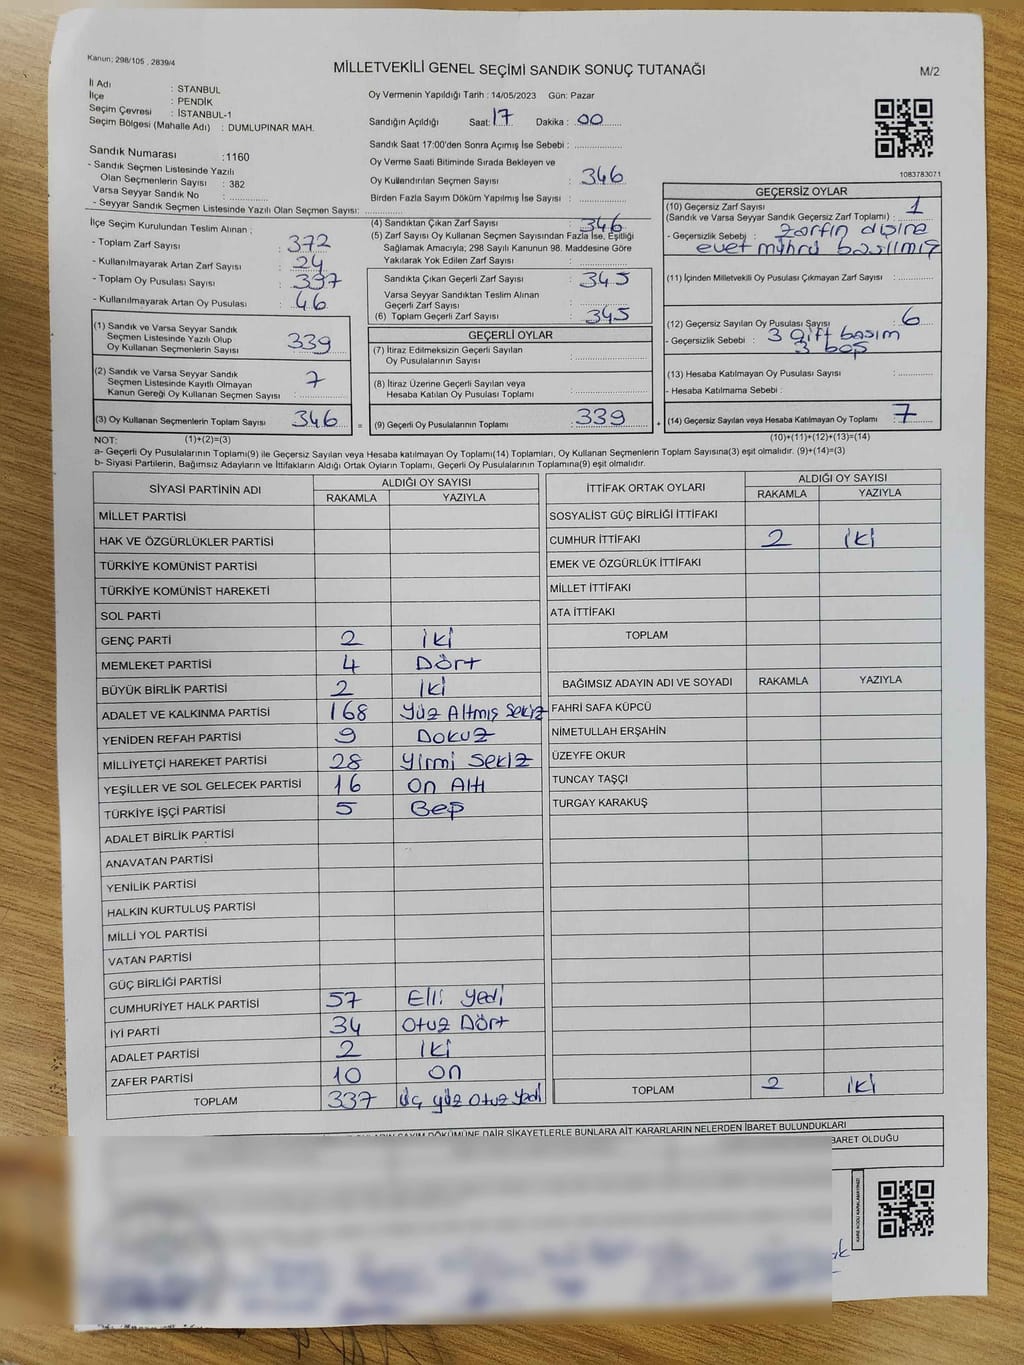 Kanun; 298/105 , 2839/4
MİLLETVEKİLİ GENEL SEÇİMİ SANDIK SONUÇ TUTANAĞI
M/2
İl Adı : STANBUL
İlçe : PENDİK
Seçim Çevresi : İSTANBUL-1
Seçim Bölgesi (Mahalle Adı) : DUMLUPINAR MAH.
Oy Vermenin Yapıldığı Tarih : 14/05/2023 Gün: Pazar
Sandığın Açıldığı Saat: 17 Dakika : 00
Sandık Saat 17:00'den Sonra Açımış İse Sebebi :
Sandık Numarası :1160
- Sandık Seçmen Listesinde Yazılı
Olan Seçmenlerin Sayısı : 382
Varsa Seyyar Sandık No :
- Seyyar Sandık Seçmen Listesinde Yazılı Olan Seçmen Sayısı:
Oy Verme Saati Bitiminde Sırada Bekleyen ve
Oy Kullendırılan Seçmen Sayısı : 346
Birden Fazla Sayım Döküm Yapılmış İse Sayısı :
1083783071
İlçe Seçim Kurulundan Teslim Alınan ;
- Toplam Zarf Sayısı : 372
- Kullanılmayarak Artan Zarf Sayısı : 24
- Toplam Oy Pusulası Sayısı : 397
- Kullanılmayarak Artan Oy Pusulası : 46
(1) Sandık ve Varsa Seyyar Sandık
Seçmen Listesinde Yazılı Olup
Oy Kullanan Seçmenlerin Sayısı : 339
(2) Sandık ve Varsa Seyyar Sandık
Seçmen Listesinde Kayıtlı Olmayan
Kanun Gereği Oy Kullanan Seçmen Sayısı : 7
(3) Oy Kullanan Seçmenlerin Toplam Sayısı : 346 =
(4) Sandıktan Çıkan Zarf Sayısı : 346
(5) Zarf Sayısı Oy Kullanan Seçmen Sayısından Fazla İse, Eşitliği
Sağlamak Amacıyla; 298 Sayılı Kanunun 98. Maddesine Göre
Yakılarak Yok Edilen Zarf Sayısı :
Sandıkta Çıkan Geçerli Zarf Sayısı : 345
Varsa Seyyar Sandıktan Teslim Alınan
Geçerli Zarf Sayısı :
(6) Toplam Geçerli Zarf Sayısı : 345
GEÇERLİ OYLAR
(7) İtiraz Edilmeksizin Geçerli Sayılan
Oy Pusulalarının Sayısı :
(8) İtiraz Üzerine Geçerli Sayılan veya
Hesaba Katılan Oy Pusulası Toplamı :
(9) Geçerli Oy Pusulalarının Toplamı : 339 +
GEÇERSİZ OYLAR
(10) Geçersiz Zarf Sayısı
(Sandık ve Varsa Seyyar Sandık Geçersiz Zarf Toplamı) : 1
- Geçersizlik Sebebi : zarfın dışına
evet mührü basılmış
(11) İçinden Milletvekili Oy Pusulası Çıkmayan Zarf Sayısı :
(12) Geçersiz Sayılan Oy Pusulası Sayısı : 6
- Geçersizlik Sebebi : 3 çift basım
3 boş
(13) Hesaba Katılmayan Oy Pusulası Sayısı :
- Hesaba Katılmama Sebebi :
(14) Geçersiz Sayılan veya Hesaba Katılmayan Oy Toplamı : 7
NOT: (1)+(2)=(3)
(10)+(11)+(12)+(13)=(14)
a- Geçerli Oy Pusulalarının Toplamı(9) ile Geçersiz Sayılan veya Hesaba katılmayan Oy Toplamı(14) Toplamları, Oy Kullanan Seçmenlerin Toplam Sayısına(3) eşit olmalıdır. (9)+(14)=(3)
b- Siyasi Partilerin, Bağımsız Adayların ve İttifakların Aldığı Ortak Oyların Toplamı, Geçerli Oy Pusulalarının Toplamına(9) eşit olmalıdır.
SİYASİ PARTİNİN ADI ALDIĞI OY SAYISI
RAKAMLA YAZIYLA
MİLLET PARTİSİ
HAK VE ÖZGÜRLÜKLER PARTİSİ
TÜRKİYE KOMÜNİST PARTİSİ
TÜRKİYE KOMÜNİST HAREKETİ
SOL PARTİ
GENÇ PARTİ 2 iki
MEMLEKET PARTİSİ 4 Dört
BÜYÜK BİRLİK PARTİSİ 2 İki
ADALET VE KALKINMA PARTİSİ 168 Yüz Altmış Sekiz
YENİDEN REFAH PARTİSİ 9 Dokuz
MİLLİYETÇİ HAREKET PARTİSİ 28 Yirmi Sekiz
YEŞİLLER VE SOL GELECEK PARTİSİ 16 On Altı
TÜRKİYE İŞÇİ PARTİSİ 5 Beş
ADALET BİRLİK PARTİSİ
ANAVATAN PARTİSİ
YENİLİK PARTİSİ
HALKIN KURTULUŞ PARTİSİ
MİLLİ YOL PARTİSİ
VATAN PARTİSİ
GÜÇ BİRLİĞİ PARTİSİ
CUMHURİYET HALK PARTİSİ 57 Elli Yedi
İYİ PARTİ 34 Otuz Dört
ADALET PARTİSİ 2 İki
ZAFER PARTİSİ 10 On
TOPLAM 337 Üç yüz Otuz Yedi
İTTİFAK ORTAK OYLARI ALDIĞI OY SAYISI
RAKAMLA YAZIYLA
SOSYALİST GÜÇ BİRLİĞİ İTTİFAKI
CUMHUR İTTİFAKI 2 iki
EMEK VE ÖZGÜRLÜK İTTİFAKI
MİLLET İTTİFAKI
ATA İTTİFAKI
TOPLAM
BAĞIMSIZ ADAYIN ADI VE SOYADI RAKAMLA YAZIYLA
FAHRİ SAFA KÜPCÜ
NİMETULLAH ERŞAHİN
ÜZEYFE OKUR
TUNCAY TAŞÇI
TURGAY KARAKUŞ
TOPLAM 2 iki
SAYIM DÖKÜMÜNE DAİR ŞİKAYETLERLE BUNLARA AİT KARARLARIN NELERDEN İBARET BULUNDUKLARI
BARET OLDUĞU